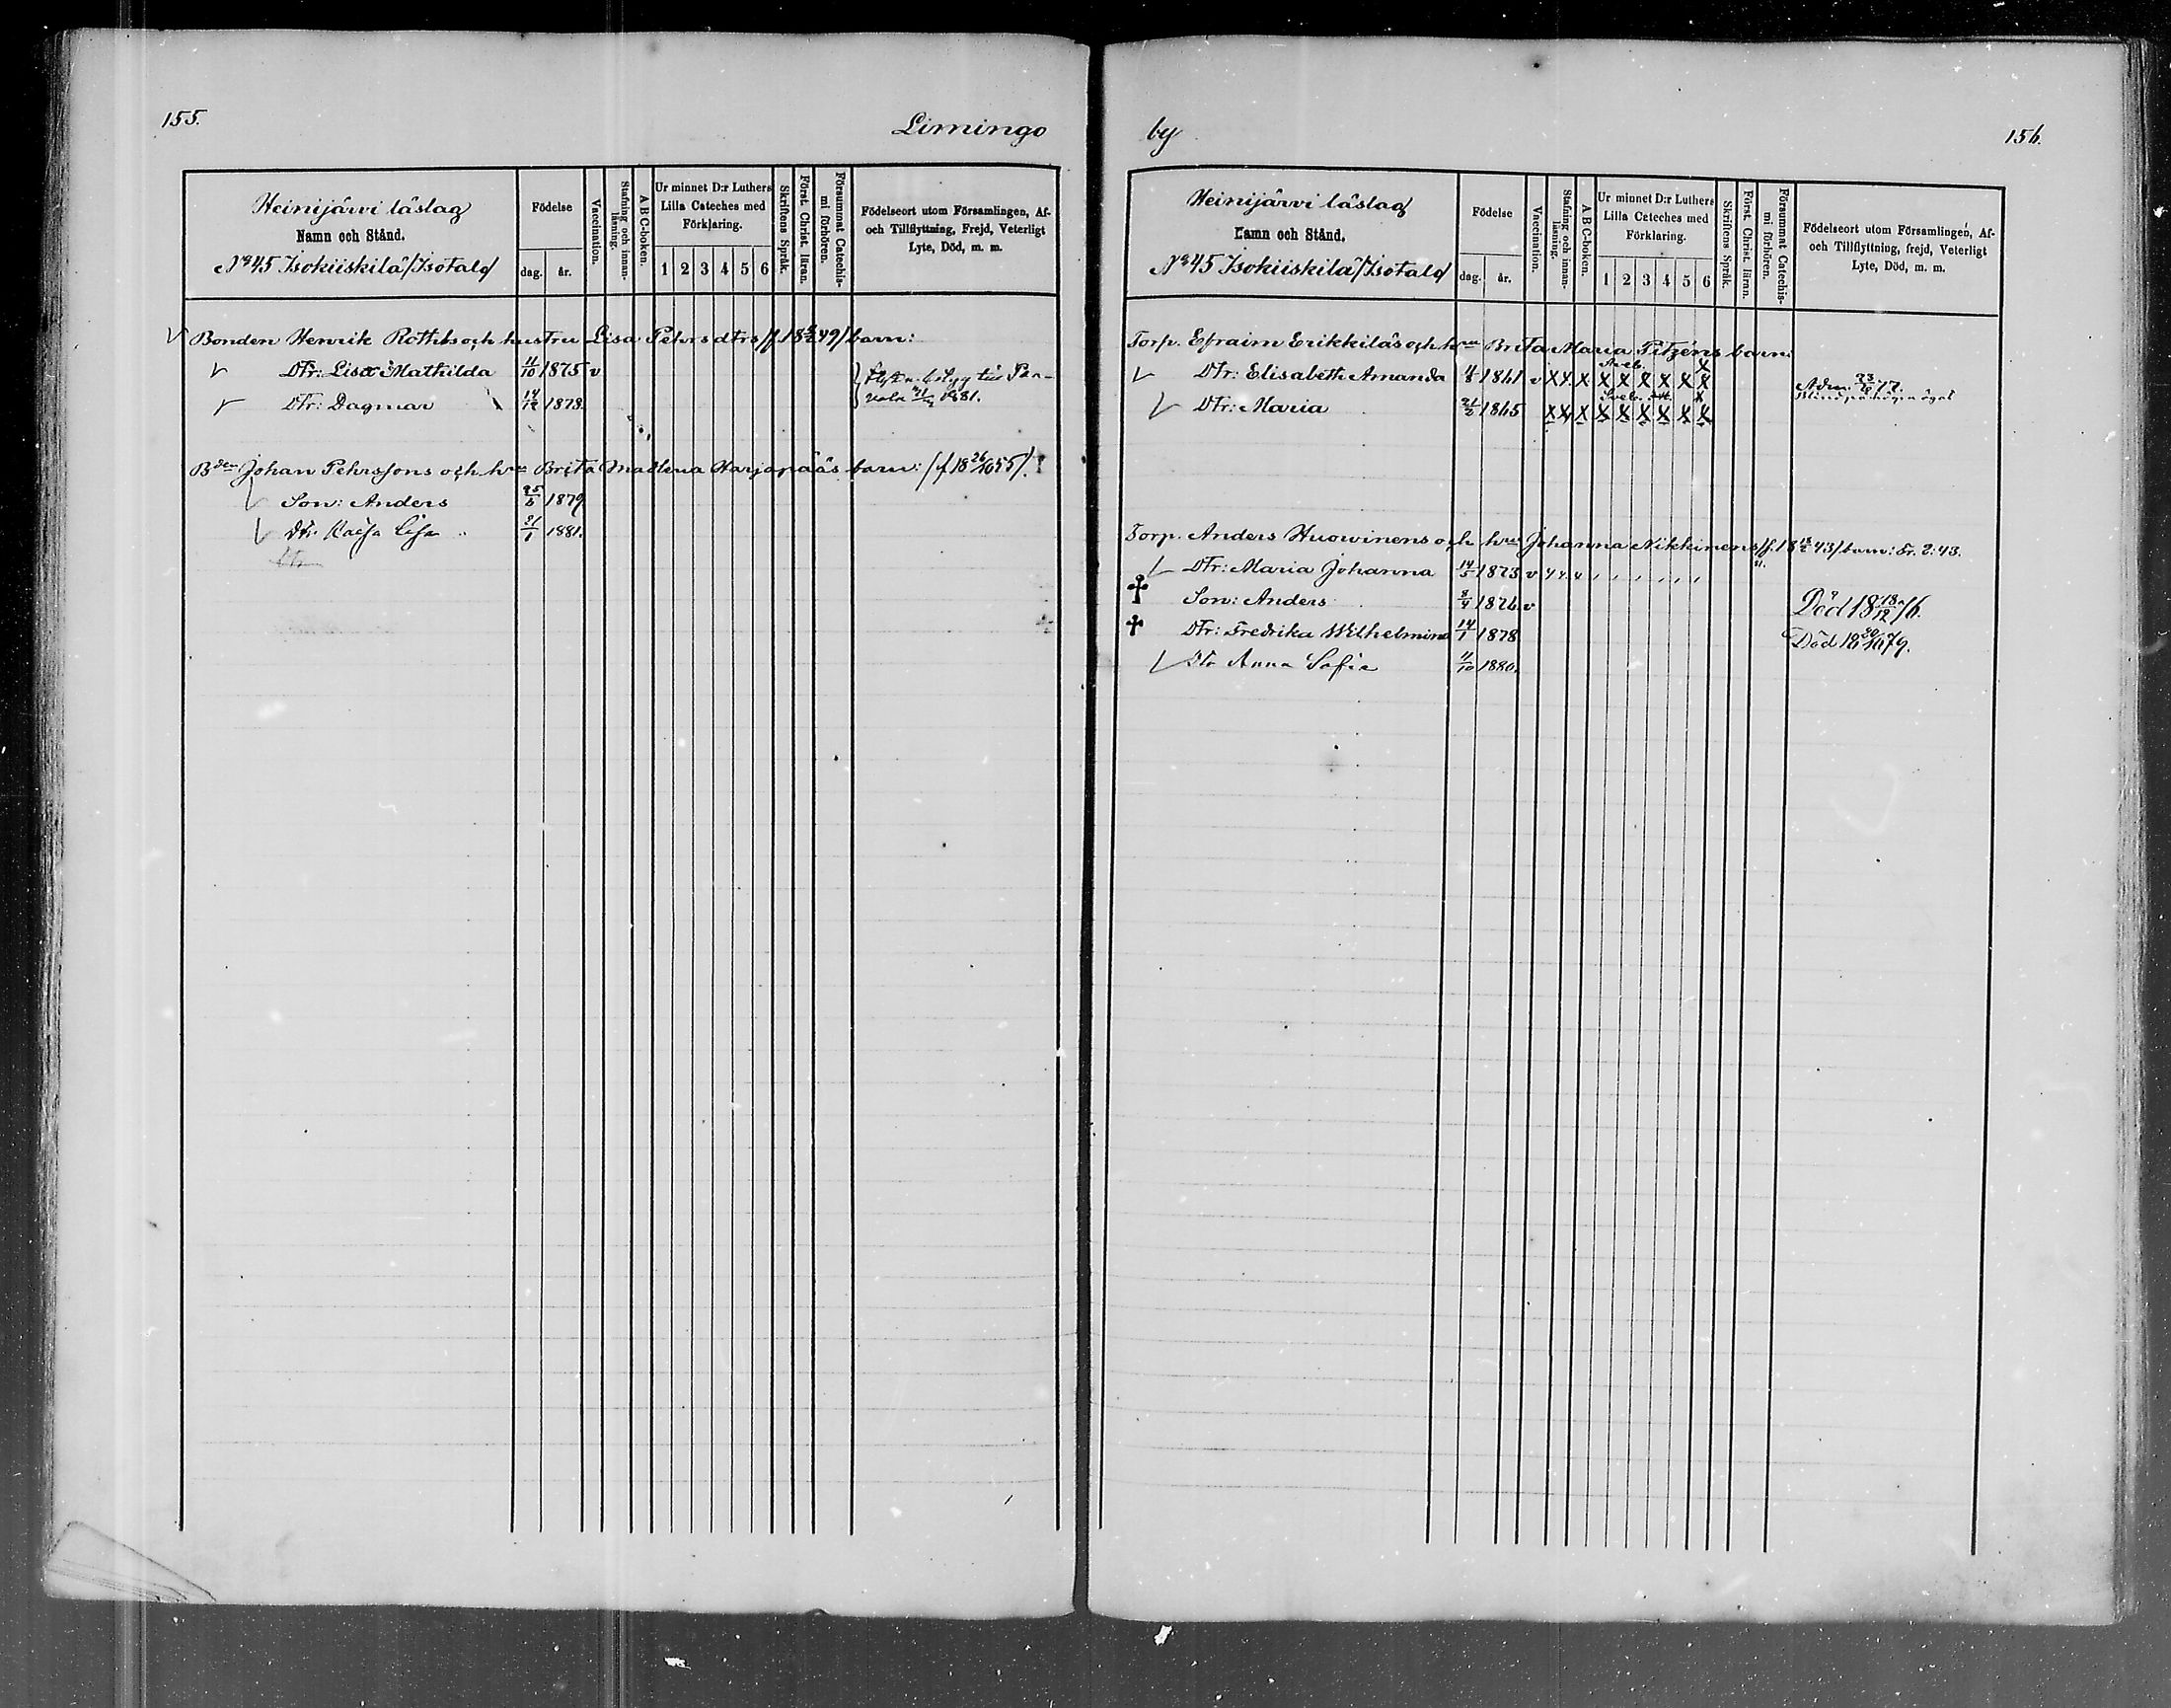 155.
Limingo
Heinijärvi läslag
Namn och Stånd.
No 45 Isokiiskilä /Isotalo/
Födelse
dag.
år.
Vaccination.
Stafning och innan-
läsning.
A B C-boken.
Ur minnet D:r Luthers
Lilla Cateches med
Förklaring.
1 2 3 4 5 6
Skriftens Språk.
Först. Christ. läran.
Försummat Catechis-
mi förhören.
Födelseort utom Församlingen, Af-
och Tillflyttning, Frejd, Veterligt
Lyte, Död, m. m.
Bonden Henrik och hustru Lisa Pehrsdtrs /f. 18 49/ barn:
Dtr: Lisa Mathilda 11/10 1875 v
till
Dtr: Dagmar 14/12 1878.
1881.
Bden Johan Pehrssons och hru Brita Madlena Harjapääs barn: /f. 18 26/10 55/.
Son: Anders 25/6 1879
Dtr Kaisa Lisa 21/1 1881.
by
156.
Heinijärvi läslag
Namn och Stånd.
No 45 Isokiiskilä /Isotalo/
Födelse
dag.
år.
Vaccination.
Stafning och innan-
läsning.
A B C-boken.
Ur minnet D:r Luthers
Lilla Cateches med
Förklaring.
1 2 3 4 5 6
Skriftens Språk.
Först. Christ. läran.
Försummat Catechis-
mi förhören.
Födelseort utom Församlingen, Af-
och Tillflyttning, frejd, Veterligt
Lyte, Död, m. m.
Torp. Efraim Erikkiläs och hru Brita Maria Pitzéns barn:
Dtr: Elisabeth Amanda 1861 v x x x x x x x x x
Dtr: Maria 21/2 1865 x x x x x x x x x
Torp. Anders Huowinens och hru Johanna Nikkinens /f. 18 43/ barn: Fr. 2:43.
Dtr: Maria Johanna 14/5 1873 v
Son: Anders 8/4 1876 v Död 18 18/12 76.
Dtr: Fredrika Wilhelmina 14/1 1878 Död 18 20/10 79.
Dtr Anna Sofia 11/10 1880.